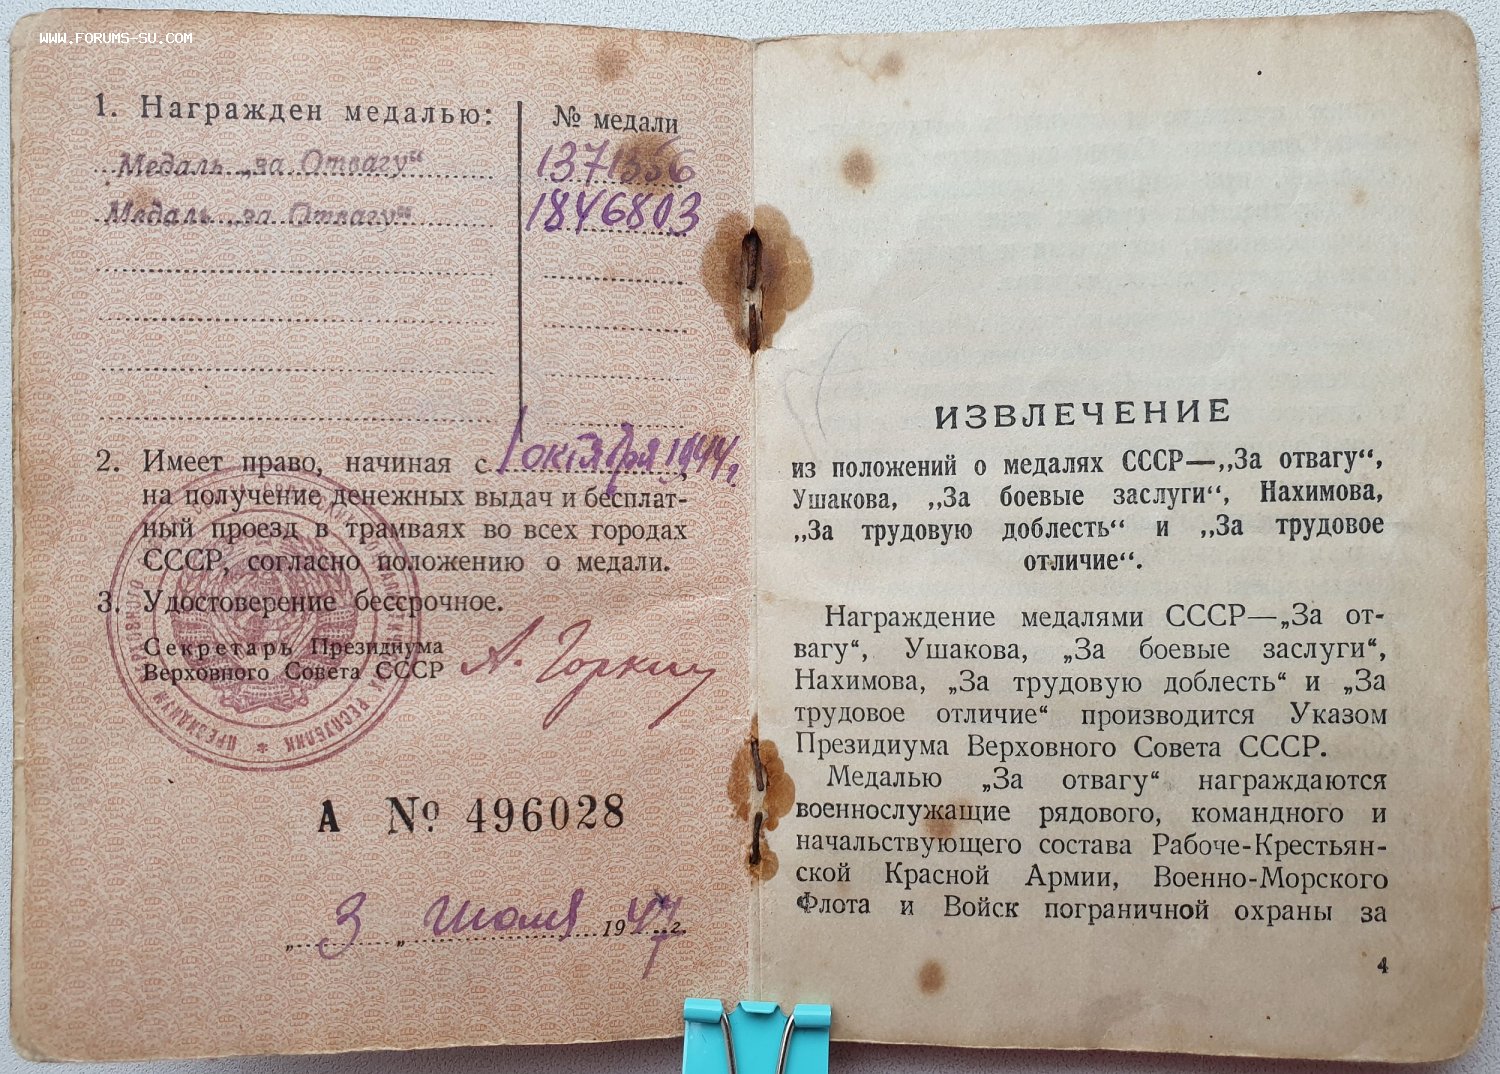 WWW.FORUMS-SU.COM
1. Награжден медалью:
№ медали
Медаль „за Отвагу“
1371356
Медаль „за Отвагу“
1846803
2. Имеет право, начиная с 1 октября 1944 г.
на получение денежных выдач и бесплат-
ный проезд в трамваях во всех городах
СССР, согласно положению о медали.
3. Удостоверение бессрочное.
Секретарь Президиума
Верховного Совета СССР
А. Горкин
А № 496028
„ 3 „ Июля 1947 г.
ИЗВЛЕЧЕНИЕ
из положений о медалях СССР—„За отвагу“,
Ушакова, „За боевые заслуги“, Нахимова,
„За трудовую доблесть“ и „За трудовое
отличие“.
Награждение медалями СССР—„За от-
вагу“, Ушакова, „За боевые заслуги“,
Нахимова, „За трудовую доблесть“ и „За
трудовое отличие“ производится Указом
Президиума Верховного Совета СССР.
Медалью „За отвагу“ награждаются
военнослужащие рядового, командного и
начальствующего состава Рабоче-Крестьян-
ской Красной Армии, Военно-Морского
Флота и Войск пограничной охраны за
4